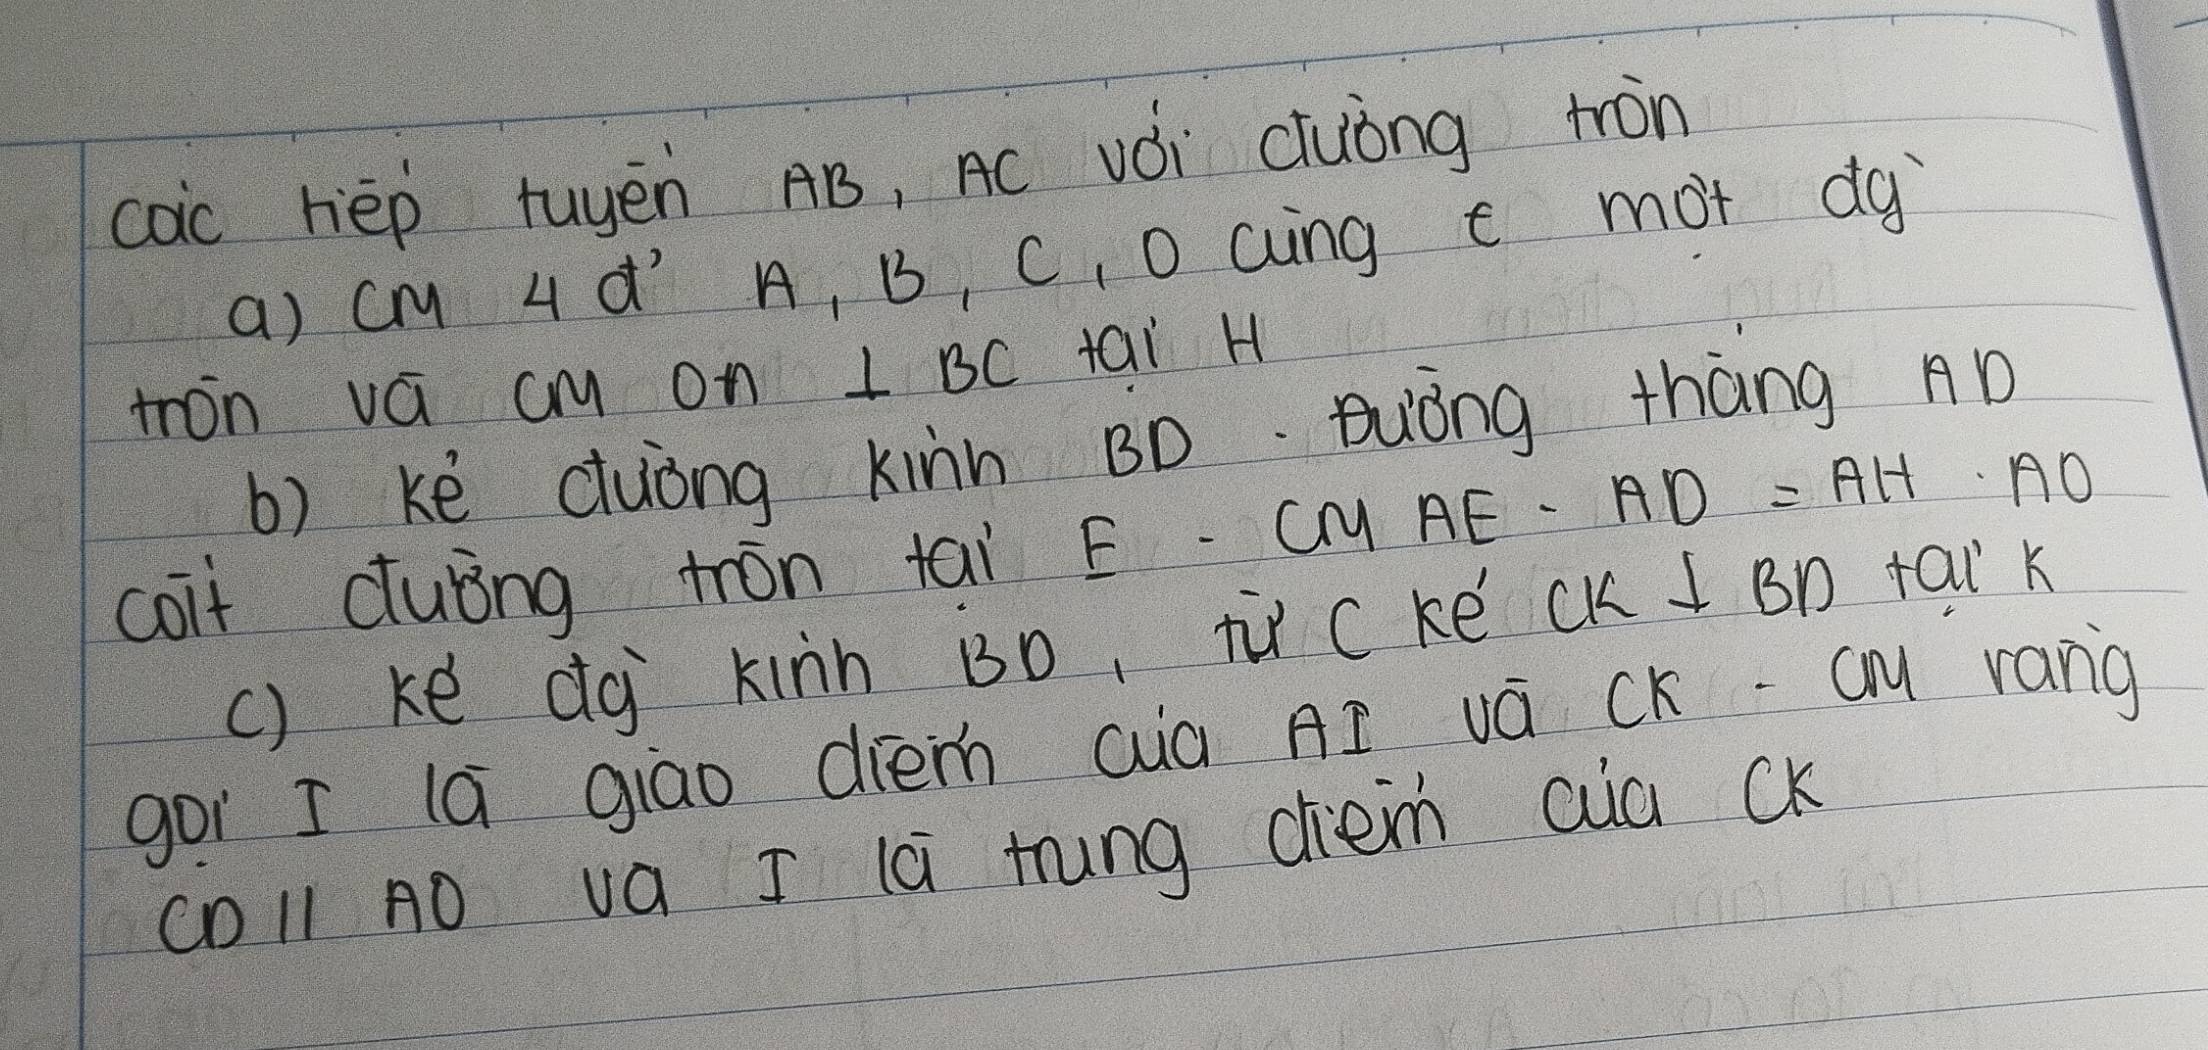 các tiếp tuyến AB, AC với đường tròn
a) CM 4 đ' A, B, C, O cùng € một đg`
tròn và CM OA ⊥ BC tại H
b) kẻ đường kính BD. Đường thẳng AD
cắt đường tròn tại E. CM AE. AD = AH. AO
c) kẻ đg` kính BD, từ C kẻ CK ⊥ BD tại K
gọi I là giao điểm của AI và CK. CM rằng
CD // AO và I là trung điểm của CK